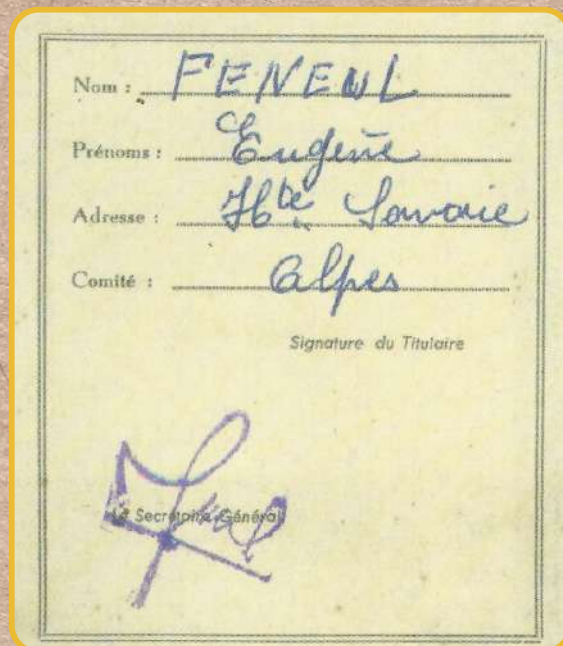 Nom : FENEUL
Prénoms : Eugène
Adresse : Hte Savoie
Comité : Alpes
Signature du Titulaire
Le Secrétaire Général